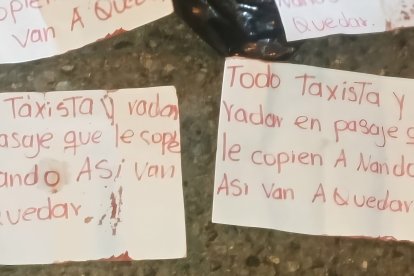 Van A Que
Quedar.
Taxista y radar
pasaje que le copie
ando ASi Van
Quedar
Todo Taxista y
radar en pasaje
le copien A Nando
ASi Van A Quedar